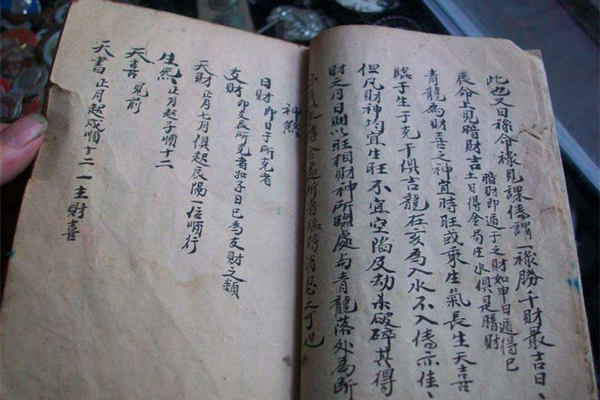 此也又日祿命祿見課傳謂一祿勝千財最吉日
辰命上見暗財吉
暗財即遁干之財如甲日遁得巳
土日得金局生水俱是暗財
青龍為財喜之神宜時旺或乘生氣長生天喜
臨于生于克干俱吉龍在亥為入水不入傳亦佳、
但凡財神均宜生旺不宜空陷及劫杀破碎其得
財之月日期以旺相財神所臨處与青龍落處為断
神煞
日財即日干所克者
支財即支辰所克者如子日巳為支財之類
天財正月七月俱起辰陽一位順行
生炁正月起子順十二
天喜見前
天書正月起戌順十二一主財喜